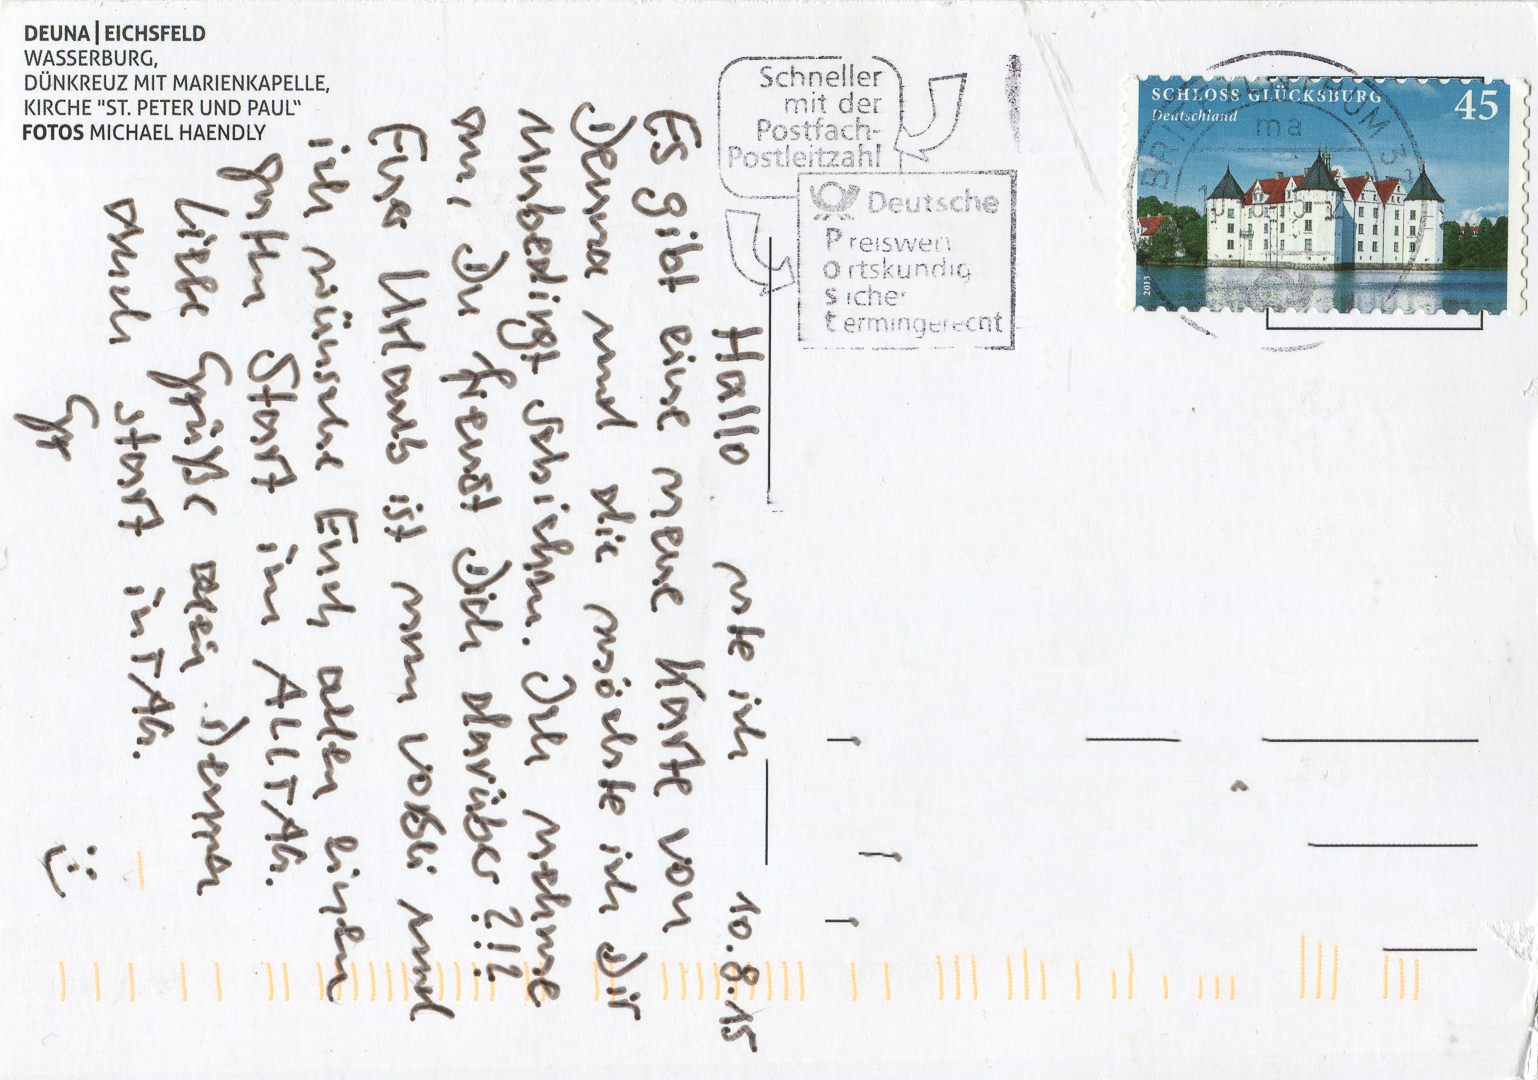 DEUNA | EICHSFELD
WASSERBURG,
DÜNKREUZ MIT MARIENKAPELLE,
KIRCHE "ST. PETER UND PAUL"
FOTOS MICHAEL HAENDLY
Schneller
mit der
Postfach-
Postleitzahl
Deutsche
Preiswert
ortskundig
sicher
termingerecht
SCHLOSS GLÜCKSBURG
Deutschland
45
2013
BRIEFZENTRUM 3
ma
Hallo ste ich 10.8.15
Es gibt eine neue Karte von
Deuna und die möchte ich Dir
unbedingt schicken. Ich nehme
an, Du freust Dich darüber ?!?
Euer Urlaub ist nun vorbei und
ich wünsche Euch allen einen
guten Start im ALLTAG.
Liebe Grüße dein Deuna
auch start in TAG.